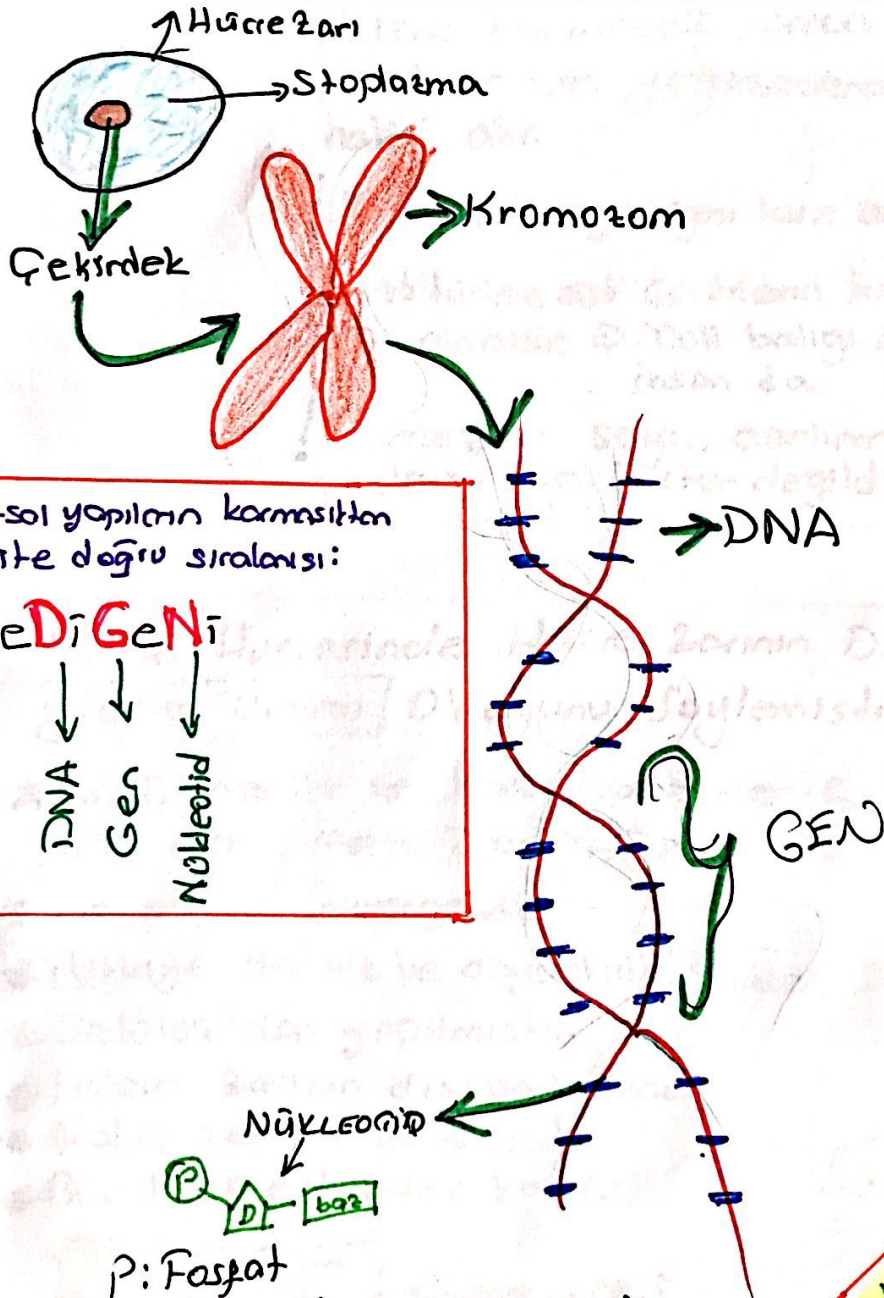 Hücre zarı
Stoplazma
Kromozom
Çekirdek
-sal yapıların karmaşıktan
doğru sıralanışı:
eDiGeNi
DNA
Gen
Nükleotid
DNA
GEN
NÜKLEOTİD
P
D
baz
P: Fosfat